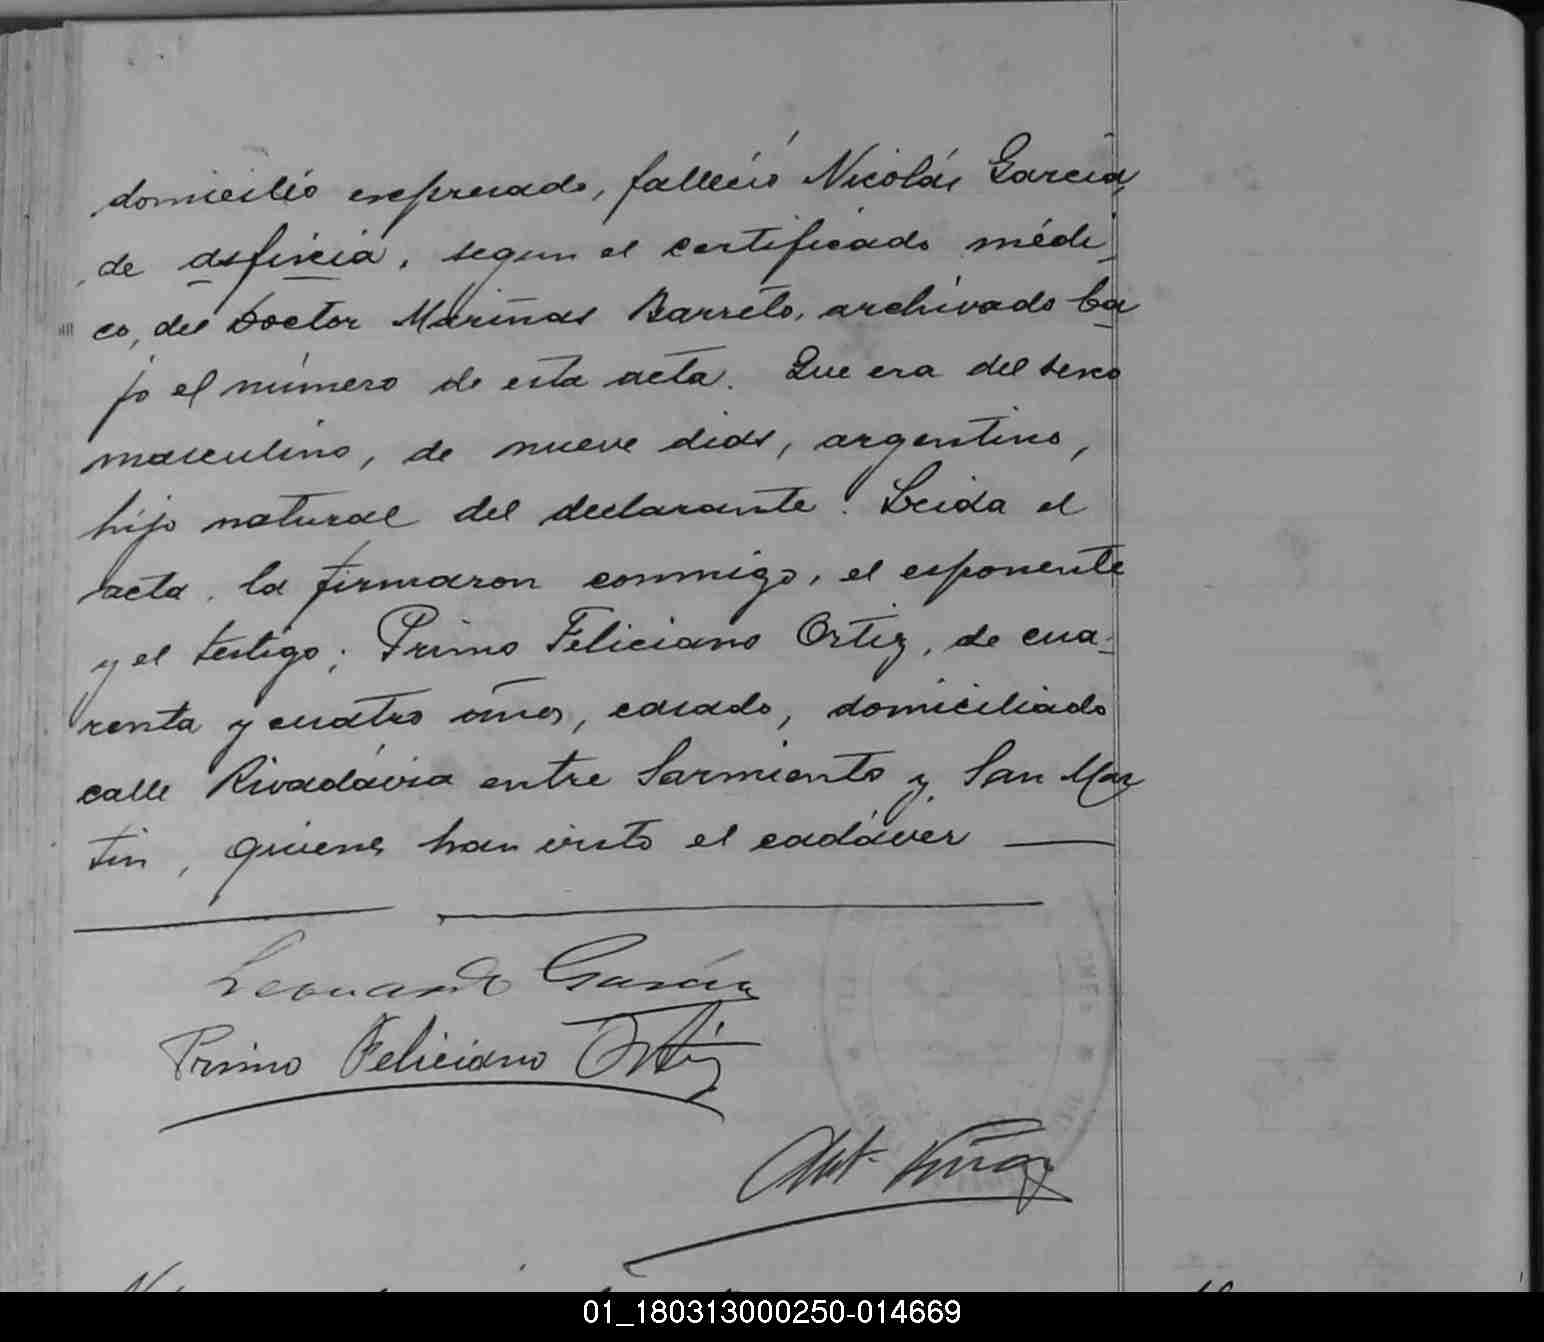 domicilio expresado, falleció Nicolás García,
de asfixia, segun el certificado médi-
co, del Doctor Mariñas Barreto, archivado ba
jo el número de esta acta. Que era del sexo
masculino, de nueve dias, argentino,
hijo natural del declarante. Leida el
acta, la firmaron conmigo, el esponente
y el testigo; Primo Feliciano Ortiz, de cua-
renta y cuatro años, casado, domiciliado
calle Rivadávia entre Sarmiento y San Mar
tin, quienes han visto el cadáver
Leonardo García
Primo Feliciano Ortiz
01_180313000250-014669